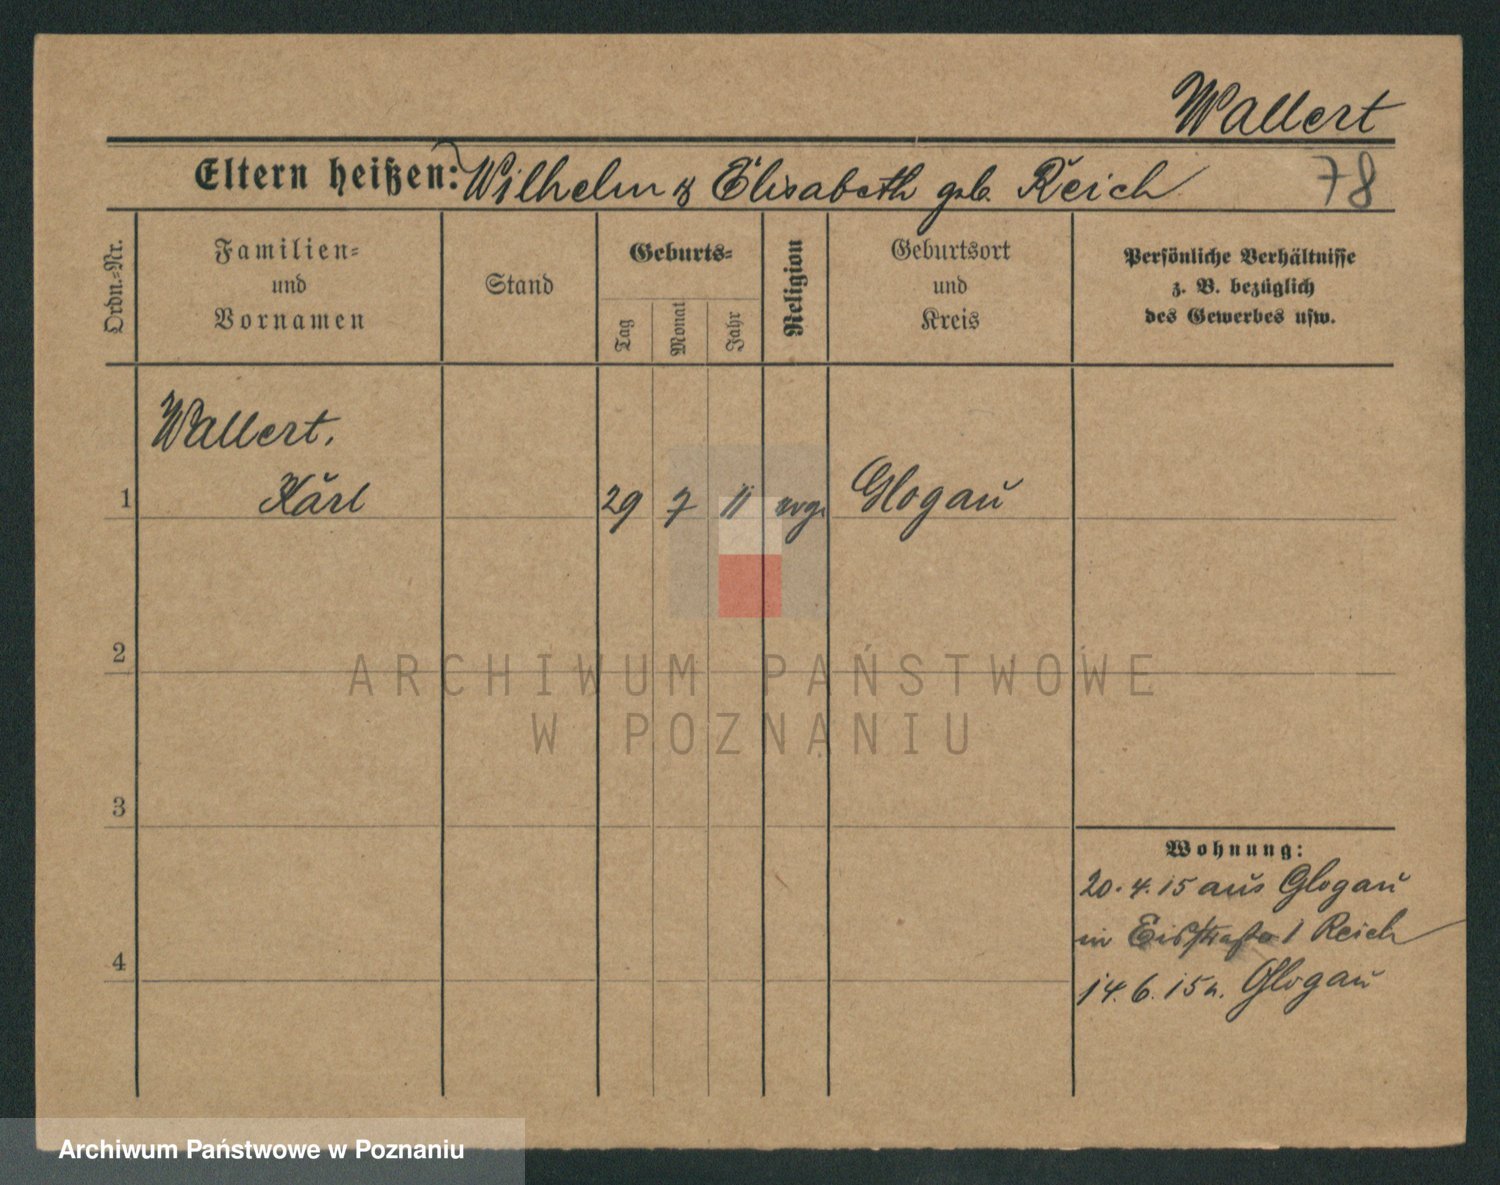 Wallert
Eltern heißen: Wilhelm & Elisabeth geb. Reich
78
Ordn.=Nr.
Familien=
und
Vornamen
Stand
Geburts=
Tag
Monat
Jahr
Religion
Geburtsort
und
Kreis
Persönliche Verhältnisse
z. B. bezüglich
des Gewerbes usw.
Wallert,
1 Karl 29 7 11 evgl. Glogau
2
ARCHIWUM PAŃSTWOWE
W POZNANIU
3
Wohnung:
20.4.15 aus Glogau
in 1 Reich
4
14.6.15 n. Glogau
Archiwum Państwowe w Poznaniu